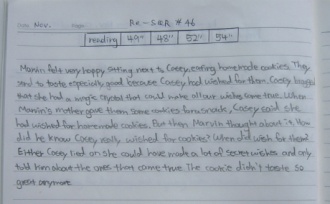 Nov.
Re-S&R #46
reading 49" 48" 52" 54"
Marvin felt very happy sitting next to Casey, eating homemade cookies. They
send to taste especially good because Casey had wished for them. Casey
that she had a magic crystal that could make all our wishes come true. When
Marvin's mother gave them some cookies for a snack, Casey said she
had wished for homemade cookies. But then Marvin thought about it. How
did he know Casey really wished for cookies? When did wish for them?
Either Casey lied on she could have made a lot of secret wishes and only
told him about the ones that come true. The cookie didn't taste so
good anymore